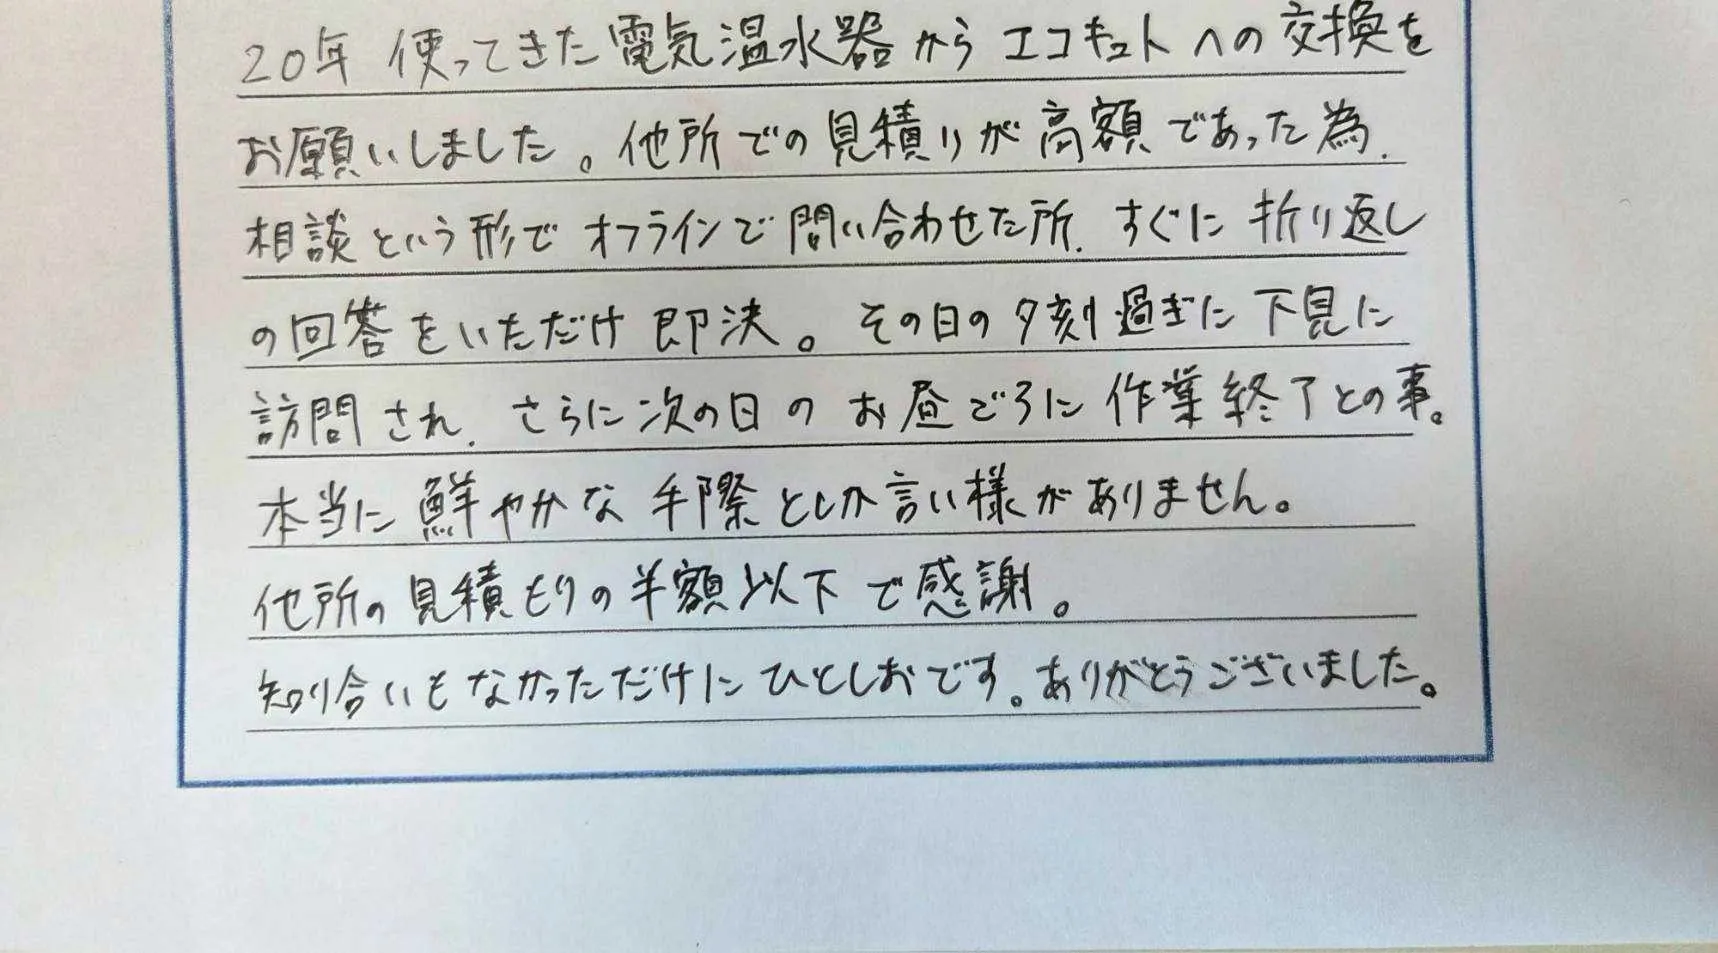 20年 使ってきた電気温水器からエコキュートへの交換を
お願いしました。他所での見積りが高額であった為、
相談という形でオフラインで問い合わせた所、すぐに折り返し
の回答をいただけ即決。その日の夕刻過ぎに下見に
訪問され、さらに次の日のお昼ごろに作業終了との事。
本当に鮮やかな手際としか言い様がありません。
他所の見積もりの半額以下で感謝。
知り合いもなかっただけにひとしおです。ありがとうございました。